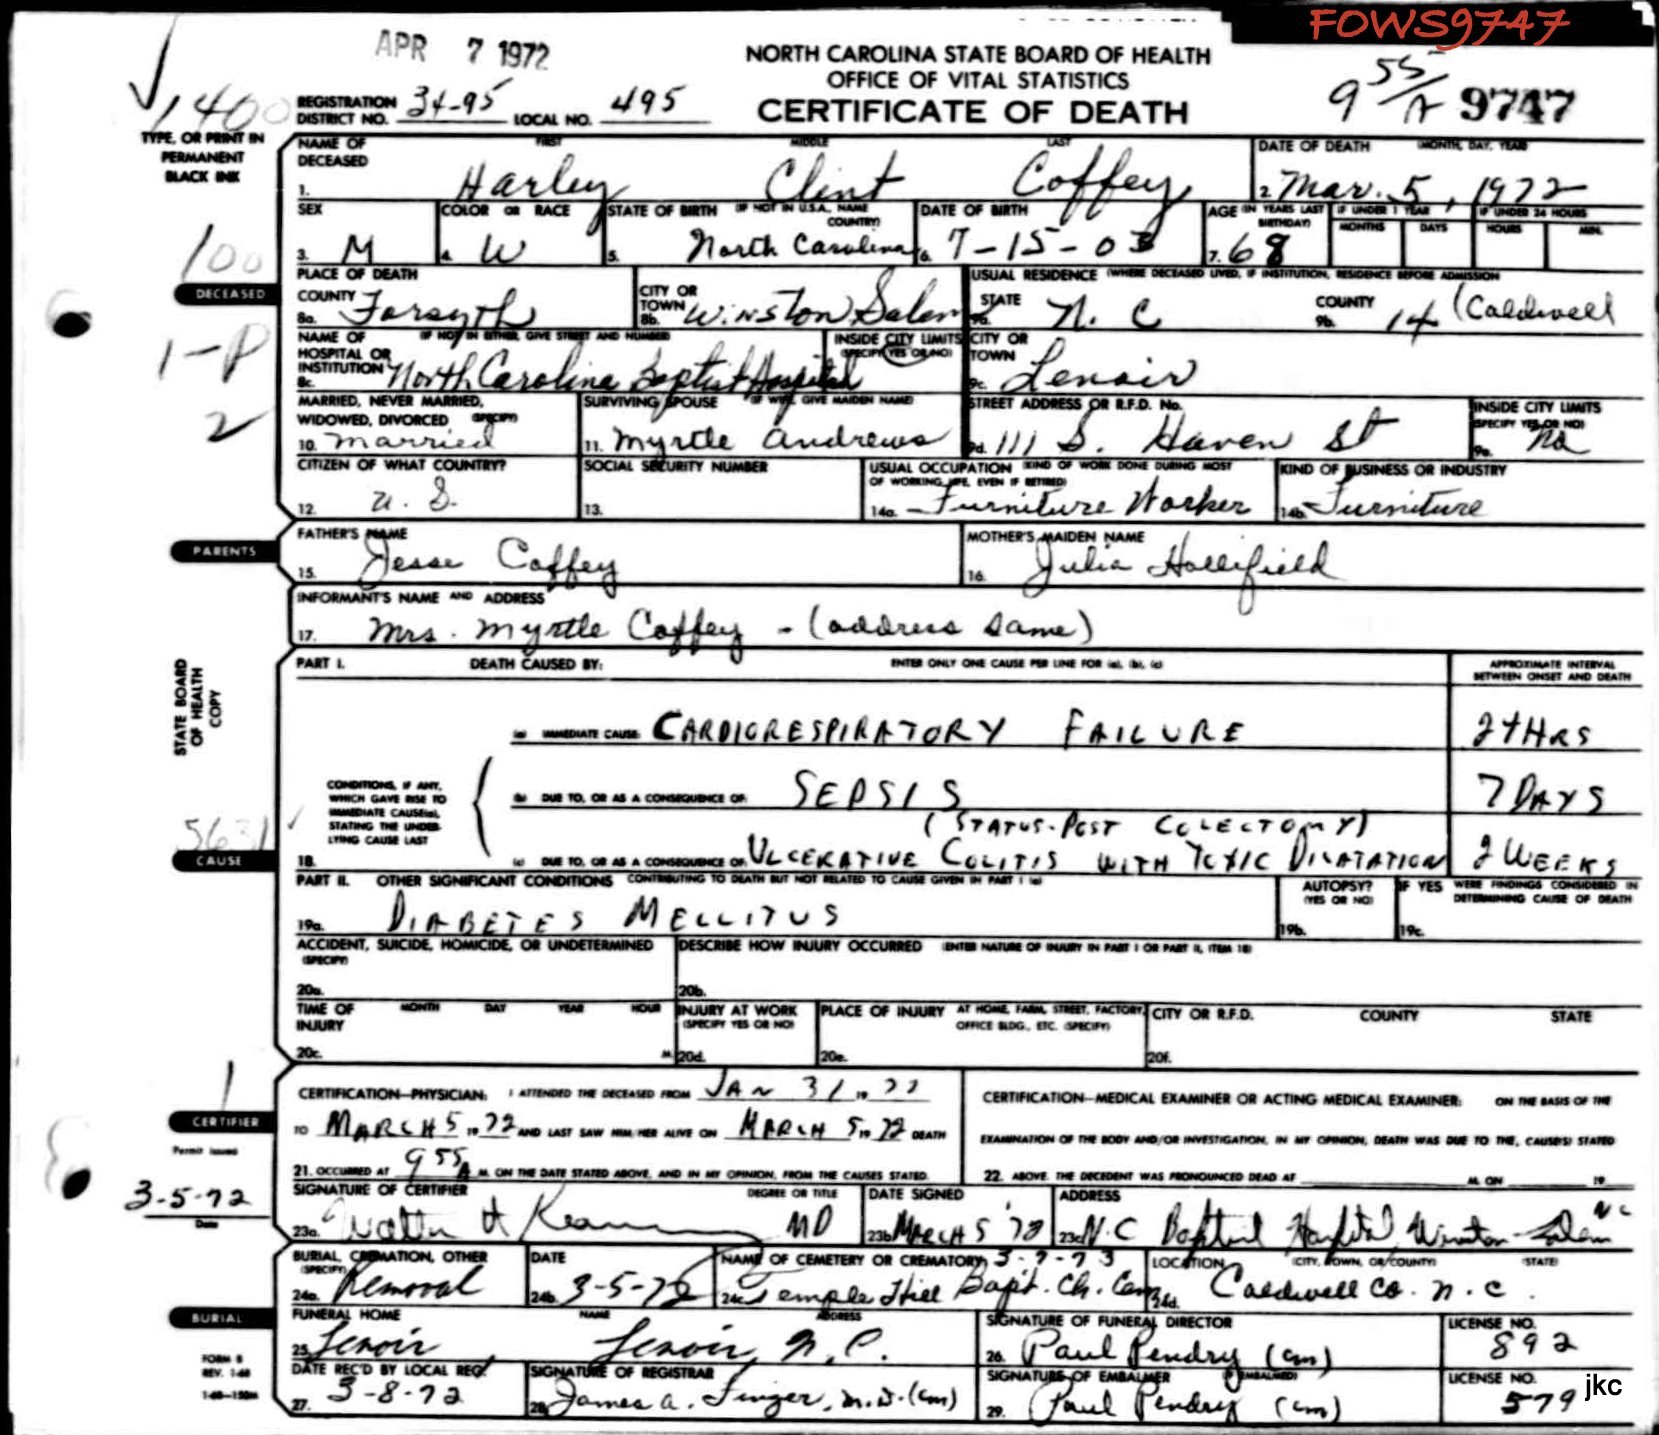 FOWS9747
APR 7 1972
NORTH CAROLINA STATE BOARD OF HEALTH
OFFICE OF VITAL STATISTICS
CERTIFICATE OF DEATH
9 55/A 9747
1400
REGISTRATION DISTRICT NO. 34-95 LOCAL NO. 495
TYPE, OR PRINT IN
PERMANENT
BLACK INK
NAME OF DECEASED FIRST MIDDLE LAST
1. Harley Clint Coffey
DATE OF DEATH (MONTH, DAY, YEAR)
2. Mar. 5, 1972
SEX
3. M
COLOR OR RACE
4. W
STATE OF BIRTH (IF NOT IN U.S.A., NAME COUNTRY)
5. North Carolina
DATE OF BIRTH
6. 7-15-03
AGE (IN YEARS LAST BIRTHDAY)
7. 68
IF UNDER 1 YEAR
MONTHS DAYS
IF UNDER 24 HOURS
HOURS MIN.
100
DECEASED
PLACE OF DEATH
COUNTY
8a. Forsyth
CITY OR TOWN
8b. Winston Salem
USUAL RESIDENCE (WHERE DECEASED LIVED, IF INSTITUTION, RESIDENCE BEFORE ADMISSION
STATE
9a. N. C
COUNTY
9b. 14 (Caldwell
1-P
NAME OF HOSPITAL OR INSTITUTION (IF NOT IN EITHER, GIVE STREET AND NUMBER)
8c. North Carolina Baptist Hospital
INSIDE CITY LIMITS
(SPECIFY YES OR NO)
CITY OR TOWN
9c. Lenoir
2
MARRIED, NEVER MARRIED,
WIDOWED, DIVORCED (SPECIFY)
10. married
SURVIVING SPOUSE (IF WIFE, GIVE MAIDEN NAME)
11. Myrtle Andrews
STREET ADDRESS OR R.F.D. No.
9d. 111 S. Haven St
INSIDE CITY LIMITS
(SPECIFY YES OR NO)
9e. No
CITIZEN OF WHAT COUNTRY?
12. U. S.
SOCIAL SECURITY NUMBER
13.
USUAL OCCUPATION (KIND OF WORK DONE DURING MOST
OF WORKING LIFE, EVEN IF RETIRED)
14a. Furniture Worker
KIND OF BUSINESS OR INDUSTRY
14b. Furniture
PARENTS
FATHER'S NAME
15. Jesse Coffey
MOTHER'S MAIDEN NAME
16. Julia Hollifield
INFORMANT'S NAME AND ADDRESS
17. Mrs. Myrtle Coffey - (address same)
STATE BOARD
OF HEALTH
COPY
PART I. DEATH CAUSED BY: ENTER ONLY ONE CAUSE PER LINE FOR (a), (b), (c)
APPROXIMATE INTERVAL
BETWEEN ONSET AND DEATH
(a) IMMEDIATE CAUSE CARDIORESPIRATORY FAILURE 24 HRS
CONDITIONS, IF ANY,
WHICH GAVE RISE TO
IMMEDIATE CAUSE(a),
STATING THE UNDER-
LYING CAUSE LAST
(b) DUE TO, OR AS A CONSEQUENCE OF: SEPSIS 7 DAYS
(STATUS-POST COLECTOMY)
5631
CAUSE
18. (c) DUE TO, OR AS A CONSEQUENCE OF: ULCERATIVE COLITIS WITH TOXIC DILATATION 2 WEEKS
PART II. OTHER SIGNIFICANT CONDITIONS CONTRIBUTING TO DEATH BUT NOT RELATED TO CAUSE GIVEN IN PART I (a)
19a. DIABETES MELLITUS
AUTOPSY?
(YES OR NO)
19b.
IF YES WERE FINDINGS CONSIDERED IN
DETERMINING CAUSE OF DEATH
19c.
ACCIDENT, SUICIDE, HOMICIDE, OR UNDETERMINED
(SPECIFY)
20a.
DESCRIBE HOW INJURY OCCURRED (ENTER NATURE OF INJURY IN PART I OR PART II, ITEM 18)
20b.
TIME OF INJURY MONTH DAY YEAR HOUR
20c. M.
INJURY AT WORK
(SPECIFY YES OR NO)
20d.
PLACE OF INJURY AT HOME, FARM, STREET, FACTORY,
OFFICE BLDG., ETC. (SPECIFY)
20e.
CITY OR R.F.D. COUNTY STATE
20f.
1
CERTIFIER
CERTIFICATION—PHYSICIAN: I ATTENDED THE DECEASED FROM JAN 31, 19 72
TO MARCH 5, 19 72 AND LAST SAW HIM/HER ALIVE ON MARCH 5, 19 72 DEATH
21. OCCURRED AT 9 55 A M. ON THE DATE STATED ABOVE, AND IN MY OPINION, FROM THE CAUSES STATED.
CERTIFICATION—MEDICAL EXAMINER OR ACTING MEDICAL EXAMINER: ON THE BASIS OF THE
EXAMINATION OF THE BODY AND/OR INVESTIGATION, IN MY OPINION, DEATH WAS DUE TO THE, CAUSE(S) STATED
22. ABOVE. THE DECEDENT WAS PRONOUNCED DEAD AT M. ON 19
Permit Issued
3-5-72
Date
SIGNATURE OF CERTIFIER DEGREE OR TITLE
23a. Walter H MD
DATE SIGNED
23b. MARCH 5 '72
ADDRESS
23c. N.C Baptist Hospital, Winston-Salem NC
BURIAL, CREMATION, OTHER
(SPECIFY)
24a. Removal
DATE
24b. 3-5-72
NAME OF CEMETERY OR CREMATORY 3-7-73
24c. Temple Hill Bapt. Ch. Cem.
LOCATION (CITY, TOWN, OR COUNTY) (STATE)
24d. Caldwell Co. N. C.
BURIAL
FUNERAL HOME NAME ADDRESS
25. Lenoir Lenoir, N. C.
SIGNATURE OF FUNERAL DIRECTOR
26. Paul Pendry (cm)
LICENSE NO.
892
FORM 8
REV. 1-68
1-68—150M
DATE REC'D BY LOCAL REG.
27. 3-8-72
SIGNATURE OF REGISTRAR
28. James A. Finger, M.D. (cm)
SIGNATURE OF EMBALMER (IF EMBALMED)
29. Paul Pendry (cm)
LICENSE NO.
579
jkc